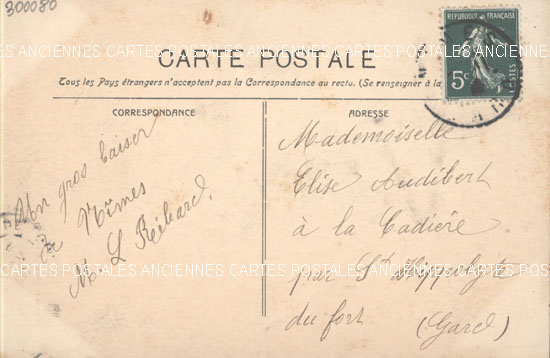 300080
RÉPUBLIQUE FRANÇAISE
5c
POSTES
CARTES POSTALES ANCIENNES CARTES POSTALES ANCIENNES
CARTE POSTALE
Tous les Pays étrangers n'acceptent pas la Correspondance au recto. (Se renseigner à la
CORRESPONDANCE
Un gros baiser
Nîmes
L
ADRESSE
Mademoiselle
Elise Audibert
à la Cadière
par St Hippolyte
du fort (Gard)
CARTES POSTALES ANCIENNES CARTES POSTALES ANCIENNES